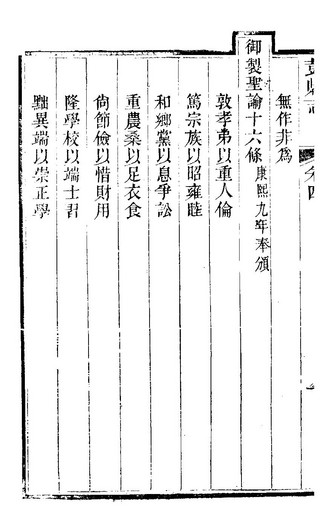 無作非爲
御製聖諭十六條康熙九年奉頒
敦孝弟以重人倫
篤宗族以昭雍睦
和鄉黨以息爭訟
重農桑以足衣食
尚節儉以惜財用
隆學校以端士習
黜異端以崇正學